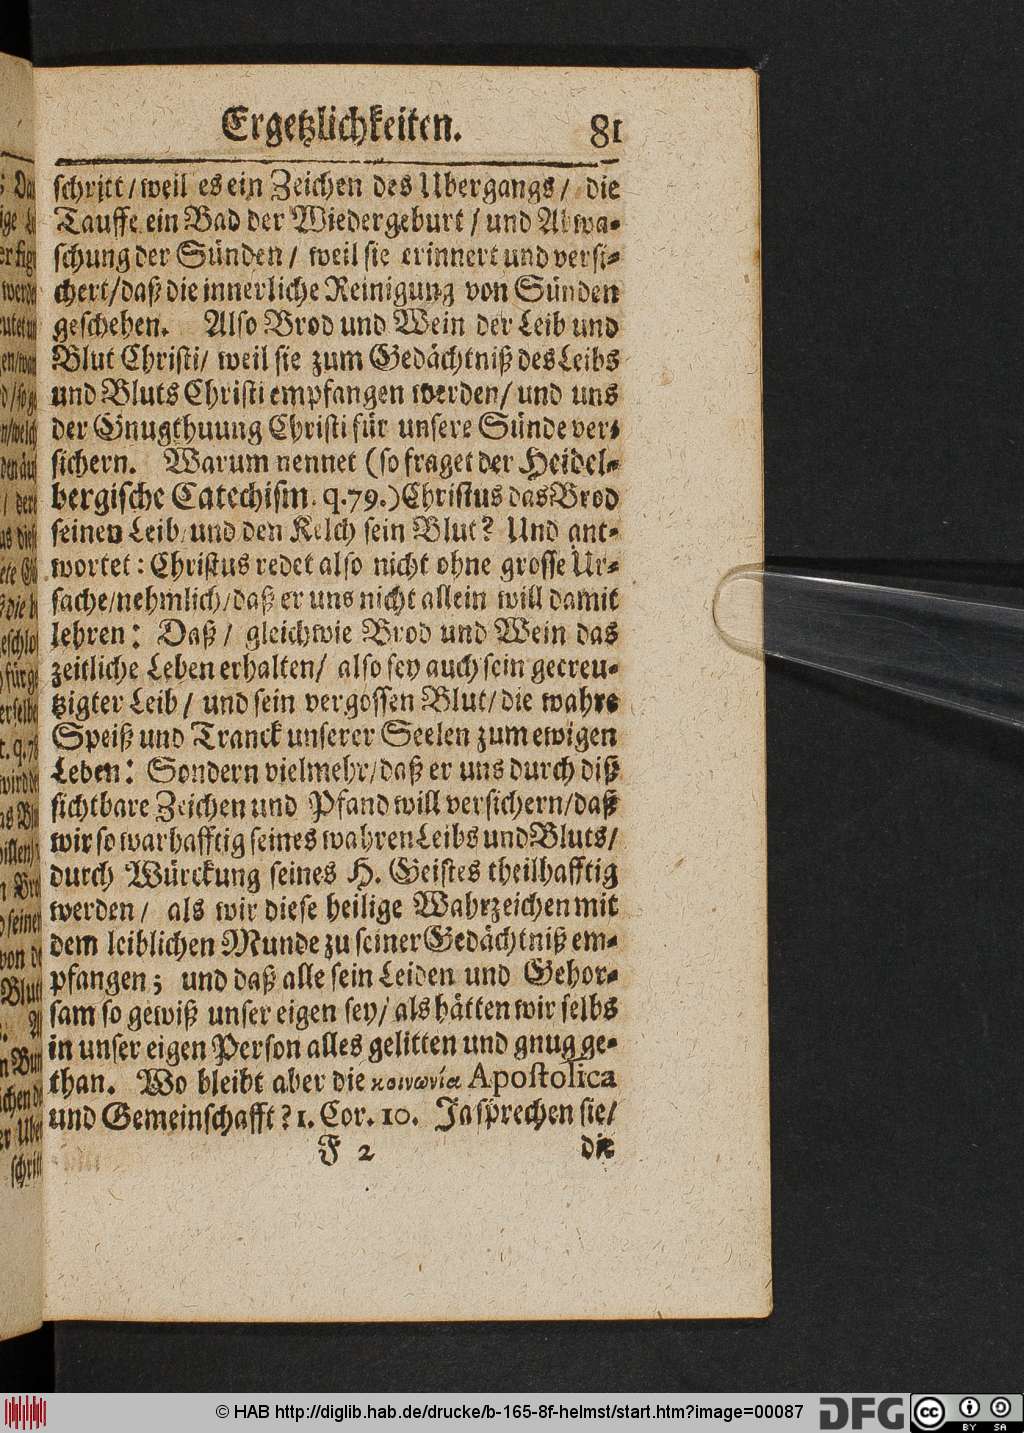 Ergetzlichkeiten. 81
schritt/ weil es ein Zeichen des Ubergangs/ die
Tauffe ein Bad der Wiedergeburt/ und Abwa-
schung der Sünden/ weil sie erinnert und versi-
chert/ daß die innerliche Reinigung von Sünden
geschehen. Also Brod und Wein der Leib und
Blut Christi/ weil sie zum Gedächtniß des Leibs
und Bluts Christi empfangen werden/ und uns
der Gnugthuung Christi für unsere Sünde ver-
sichern. Warum nennet (so fraget der Heidel-
bergische Catechism. q. 79.) Christus das Brod
seinen Leib/ und den Kelch sein Blut? Und ant-
wortet: Christus redet also nicht ohne grosse Ur-
sache/ nehmlich/ daß er uns nicht allein will damit
lehren: Daß/ gleichwie Brod und Wein das
zeitliche Leben erhalten/ also sey auch sein gecreu-
tzigter Leib/ und sein vergossen Blut/ die wahre
Speiß und Tranck unserer Seelen zum ewigen
Leben: Sondern vielmehr/ daß er uns durch diß
sichtbare Zeichen und Pfand will versichern/ daß
wir so warhafftig seines wahren Leibs und Bluts/
durch Würckung seines H. Geistes theilhafftig
werden/ als wir diese heilige Wahrzeichen mit
dem leiblichen Munde zu seiner Gedächtniß em-
pfangen; und daß alle sein Leiden und Gehor-
sam so gewiß unser eigen sey/ als hätten wir selbs
in unser eigen Person alles gelitten und gnug ge-
than. Wo bleibt aber die κοινωνία Apostolica
und Gemeinschafft? 1. Cor. 10. Ja sprechen sie/
F 2 die
© HAB http://diglib.hab.de/drucke/b-165-8f-helmst/start.htm?image=00087
DFG
cc BY SA